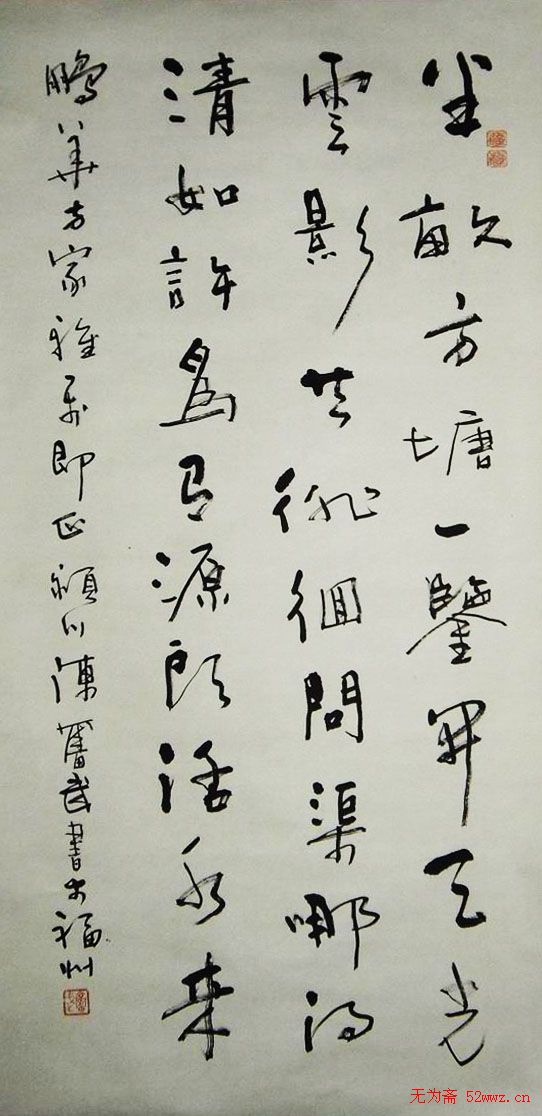 半畝方塘一鑒開天光
雲影共徘徊問渠哪得
清如許爲有源頭活水来
鵬華方家雅即正潁川陳奮武書於福州
无为斋 52wwz.cn